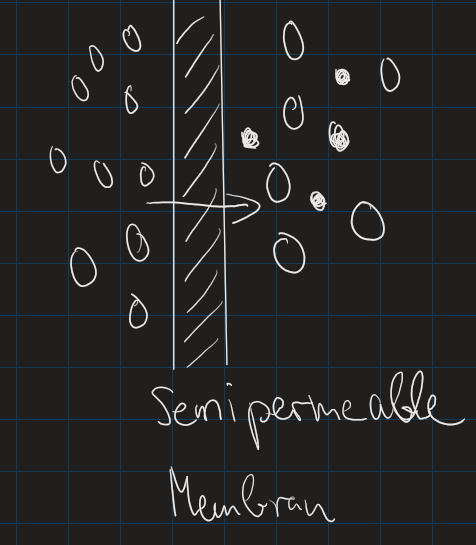 Semipermeable
Membran